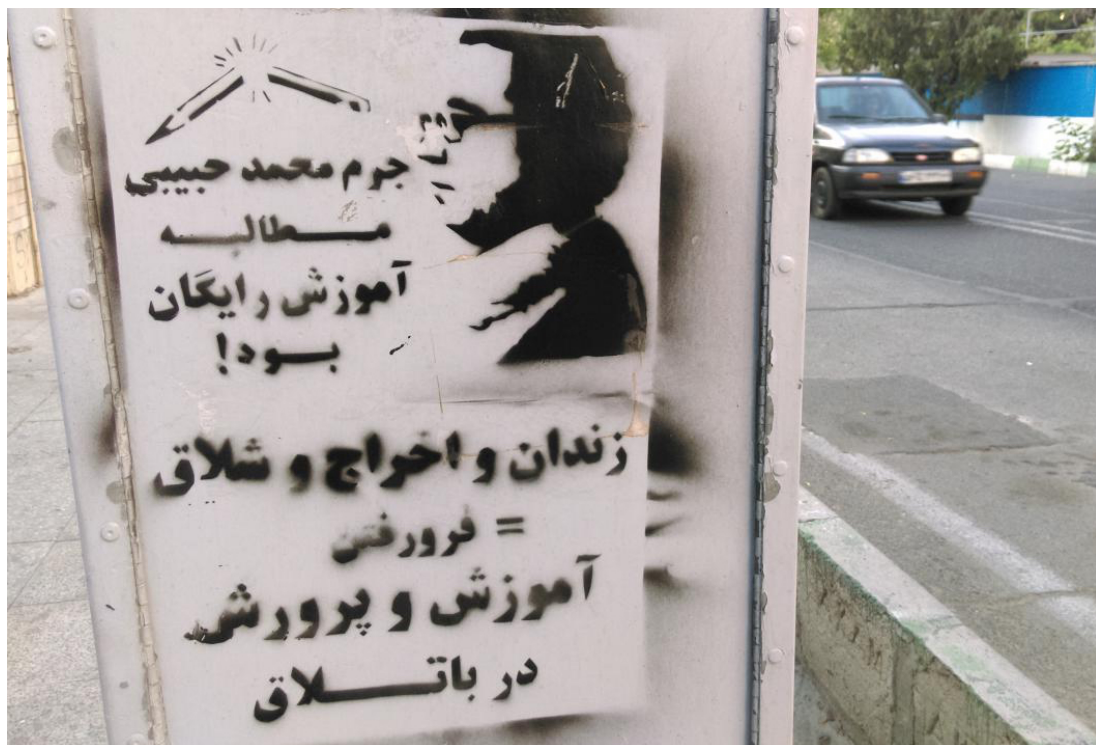 جرم محمد حبیبی
مطالبه
آموزش رایگان
بود!
زندان و اخراج و شلاق
= فرورفتن
آموزش و پرورش
در باتلاق